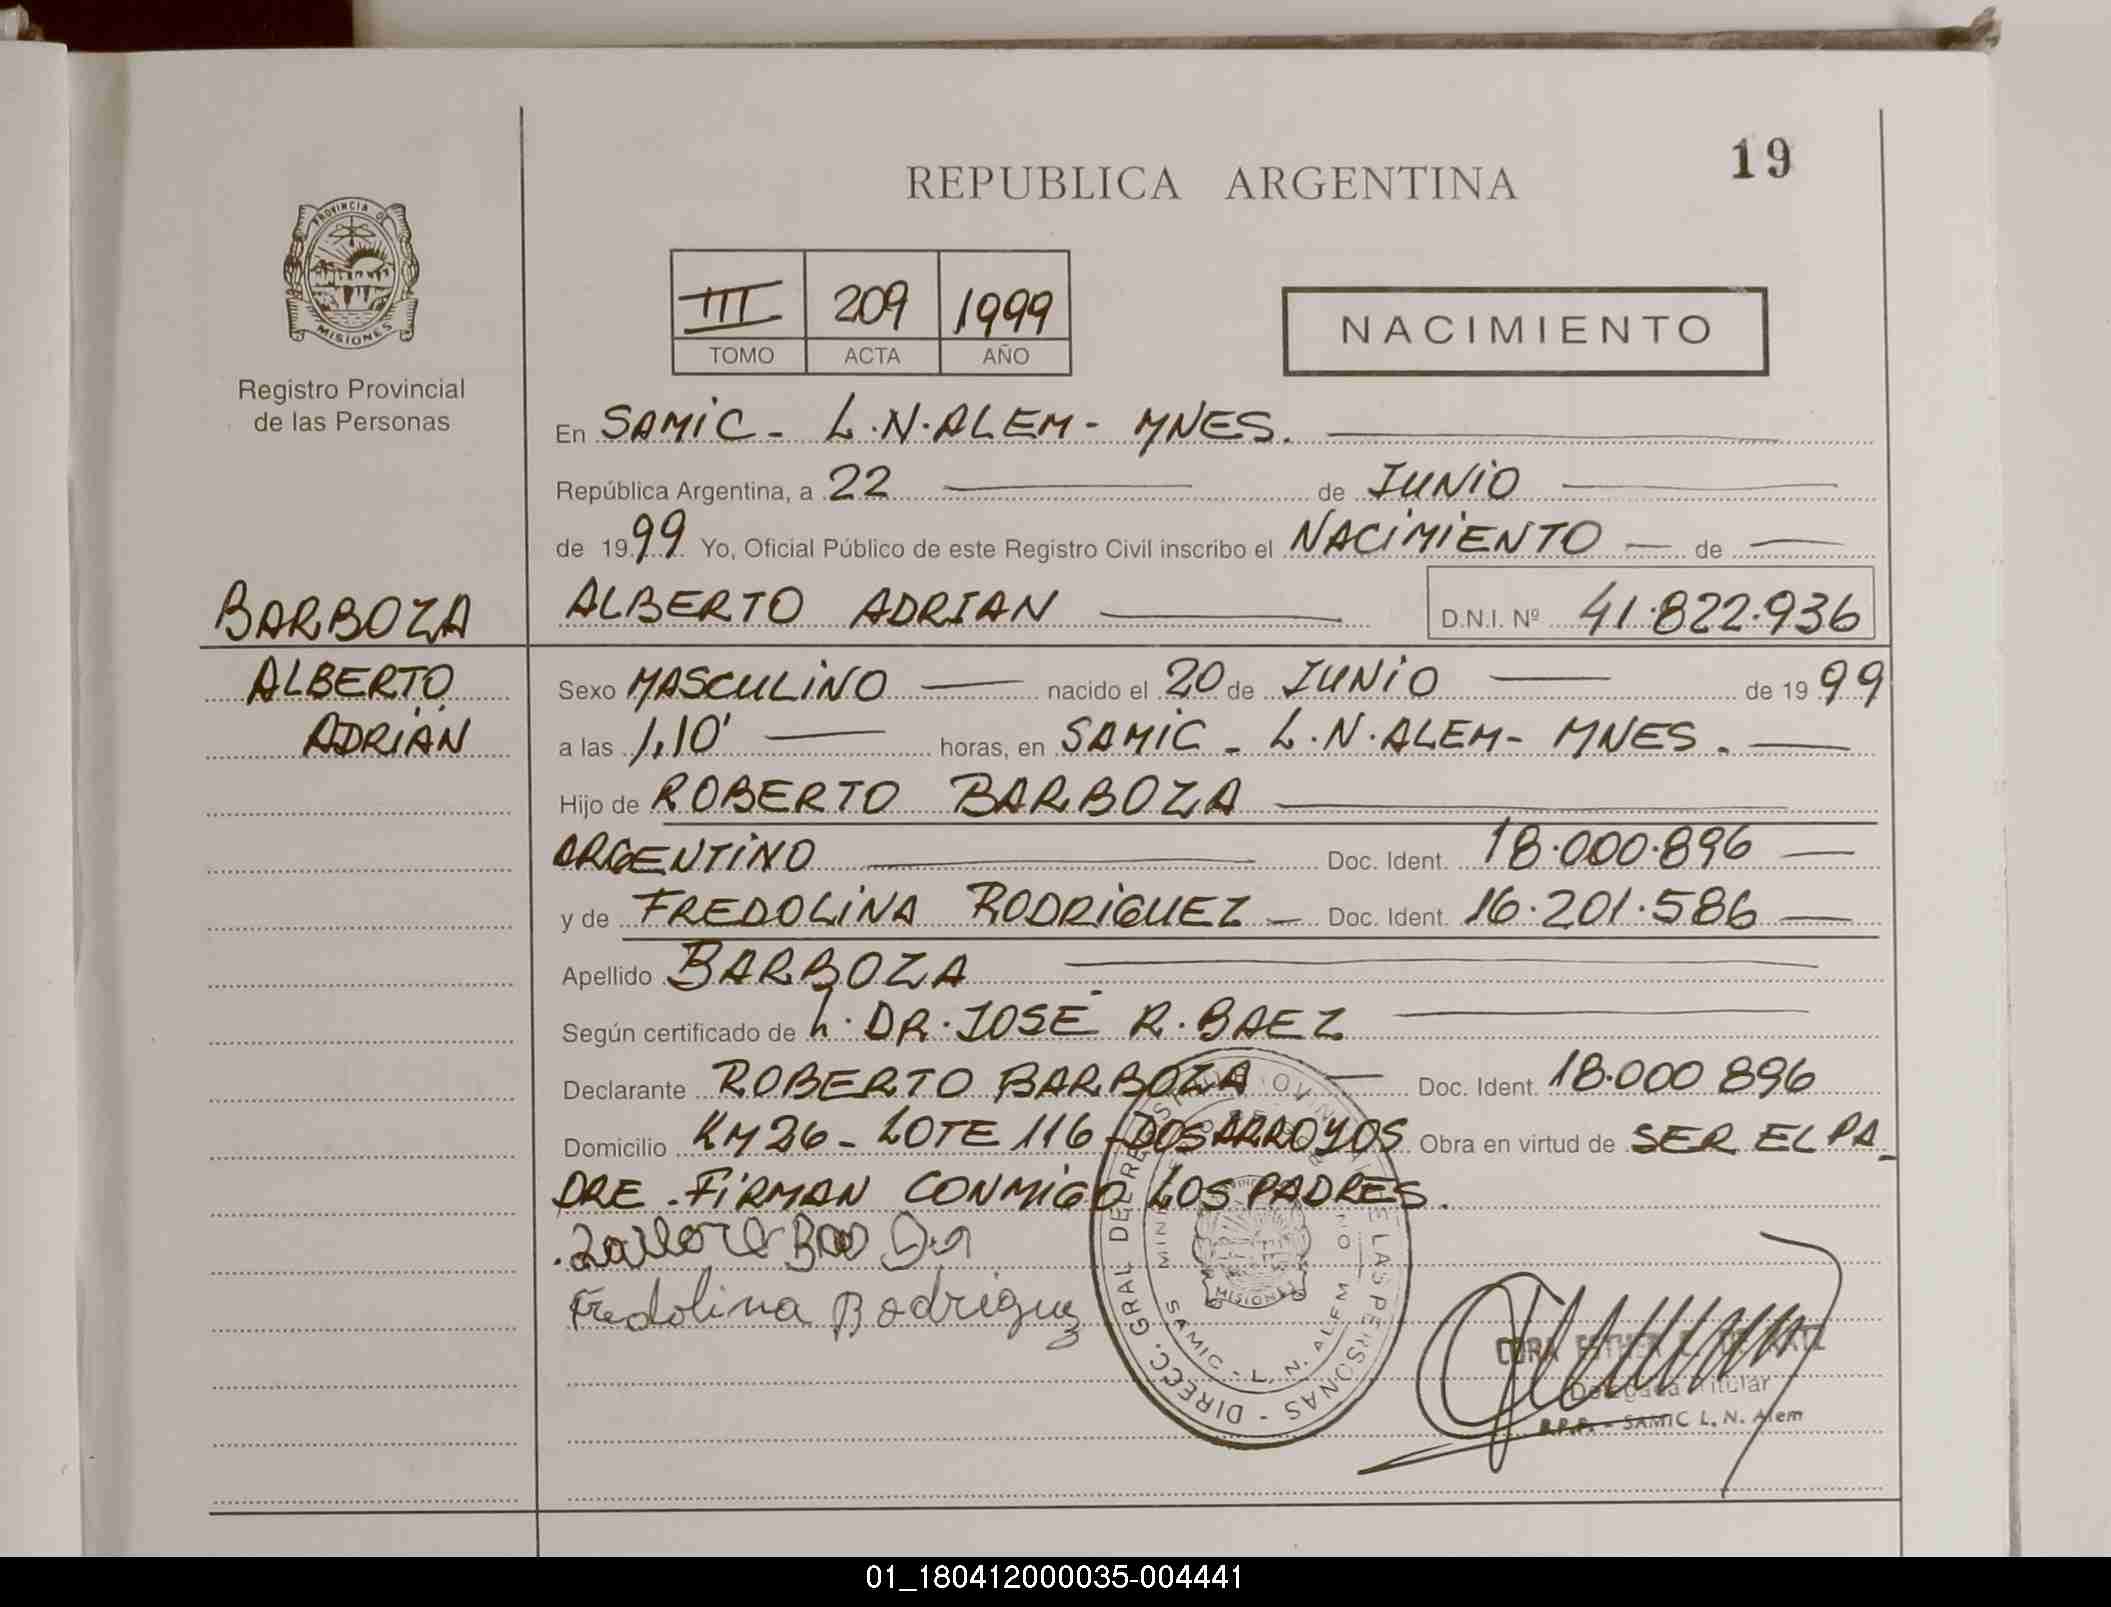 19
REPUBLICA ARGENTINA
PROVINCIA DE
MISIONES
III 209 1999
TOMO ACTA AÑO
NACIMIENTO
Registro Provincial
de las Personas
En SAMIC - L.N. ALEM - MNES.
República Argentina, a 22 de JUNIO
de 1999 Yo, Oficial Público de este Registro Civil inscribo el NACIMIENTO de
BARBOZA
ALBERTO ADRIAN D.N.I. Nº 41.822.936
ALBERTO
ADRIÁN
Sexo MASCULINO nacido el 20 de JUNIO de 1999
a las 1,10' horas, en SAMIC - L.N. ALEM - MNES.
Hijo de ROBERTO BARBOZA
ARGENTINO Doc. Ident. 18.000.896
y de FREDOLINA RODRIGUEZ Doc. Ident. 16.201.586
Apellido BARBOZA
Según certificado de h. DR. JOSE R. BAEZ
Declarante ROBERTO BARBOZA Doc. Ident. 18.000 896
Domicilio KM 26 - LOTE 116 - DOS ARROYOS Obra en virtud de SER EL PA-
DRE. FIRMAN CONMIGO LOS PADRES.
Fredolina Rodriguez
DIRECC. GRAL DE PERSONAS
SAMIC - L. N. ALEM
MISIONES
Delegada Titular
R.P.P. - SAMIC L. N. Alem
01_180412000035-004441